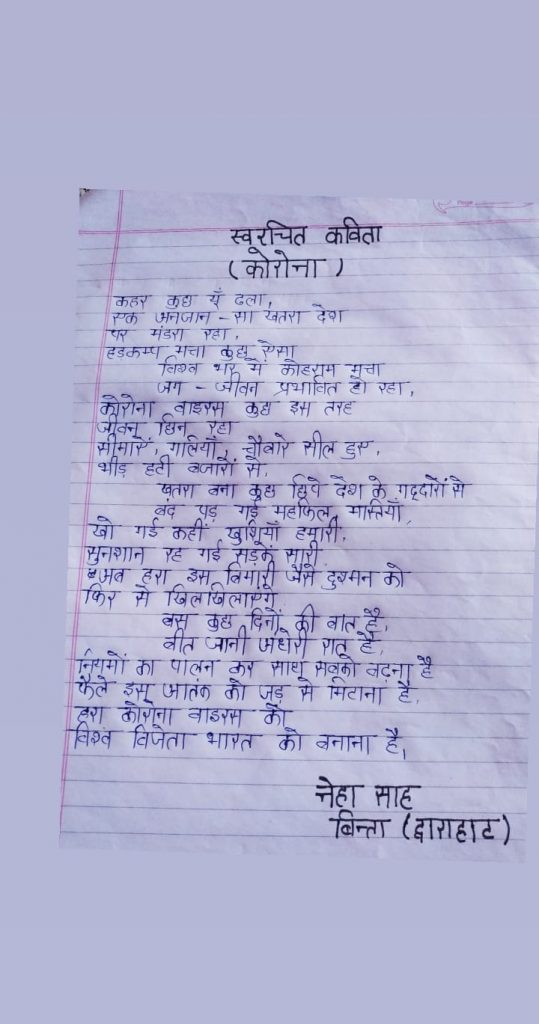 स्वरचित कविता
(कोरोना)
कहर कुछ यूँ ढला,
एक अनजान-सा खतरा देश
पर मंडरा रहा,
हड़कम्प मचा कुछ ऐसा
विश्व भर में कोहराम मचा
जग-जीवन प्रभावित हो रहा,
कोरोना वाइरस कुछ इस तरह
जीवन छिन रहा
सीमाएँ, गलियाँ, चौबारे सील हुए,
भीड़ हटी बजारों से,
खतरा बना कुछ छिपे देश के गद्दारों से
बंद पड़ गई महफिल, मास्तियाँ,
खो गई कहीं खुशियाँ हमारी,
सुनशान रह गई सड़कें सारी
अब हरा इस बिमारी जैसे दुश्मन को
फिर से खिलखिलाएंगे
बस कुछ दिनों की बात है,
बीत जानी अंधेरी रात है,
नियमों का पालन कर साथ सबको बढ़ना है
फैले इस आतंक को जड़ से मिटाना है,
हरा कोरोना वाइरस को
विश्व विजेता भारत को बनाना है,
नेहा साह
बिन्ता (द्वाराहाट)